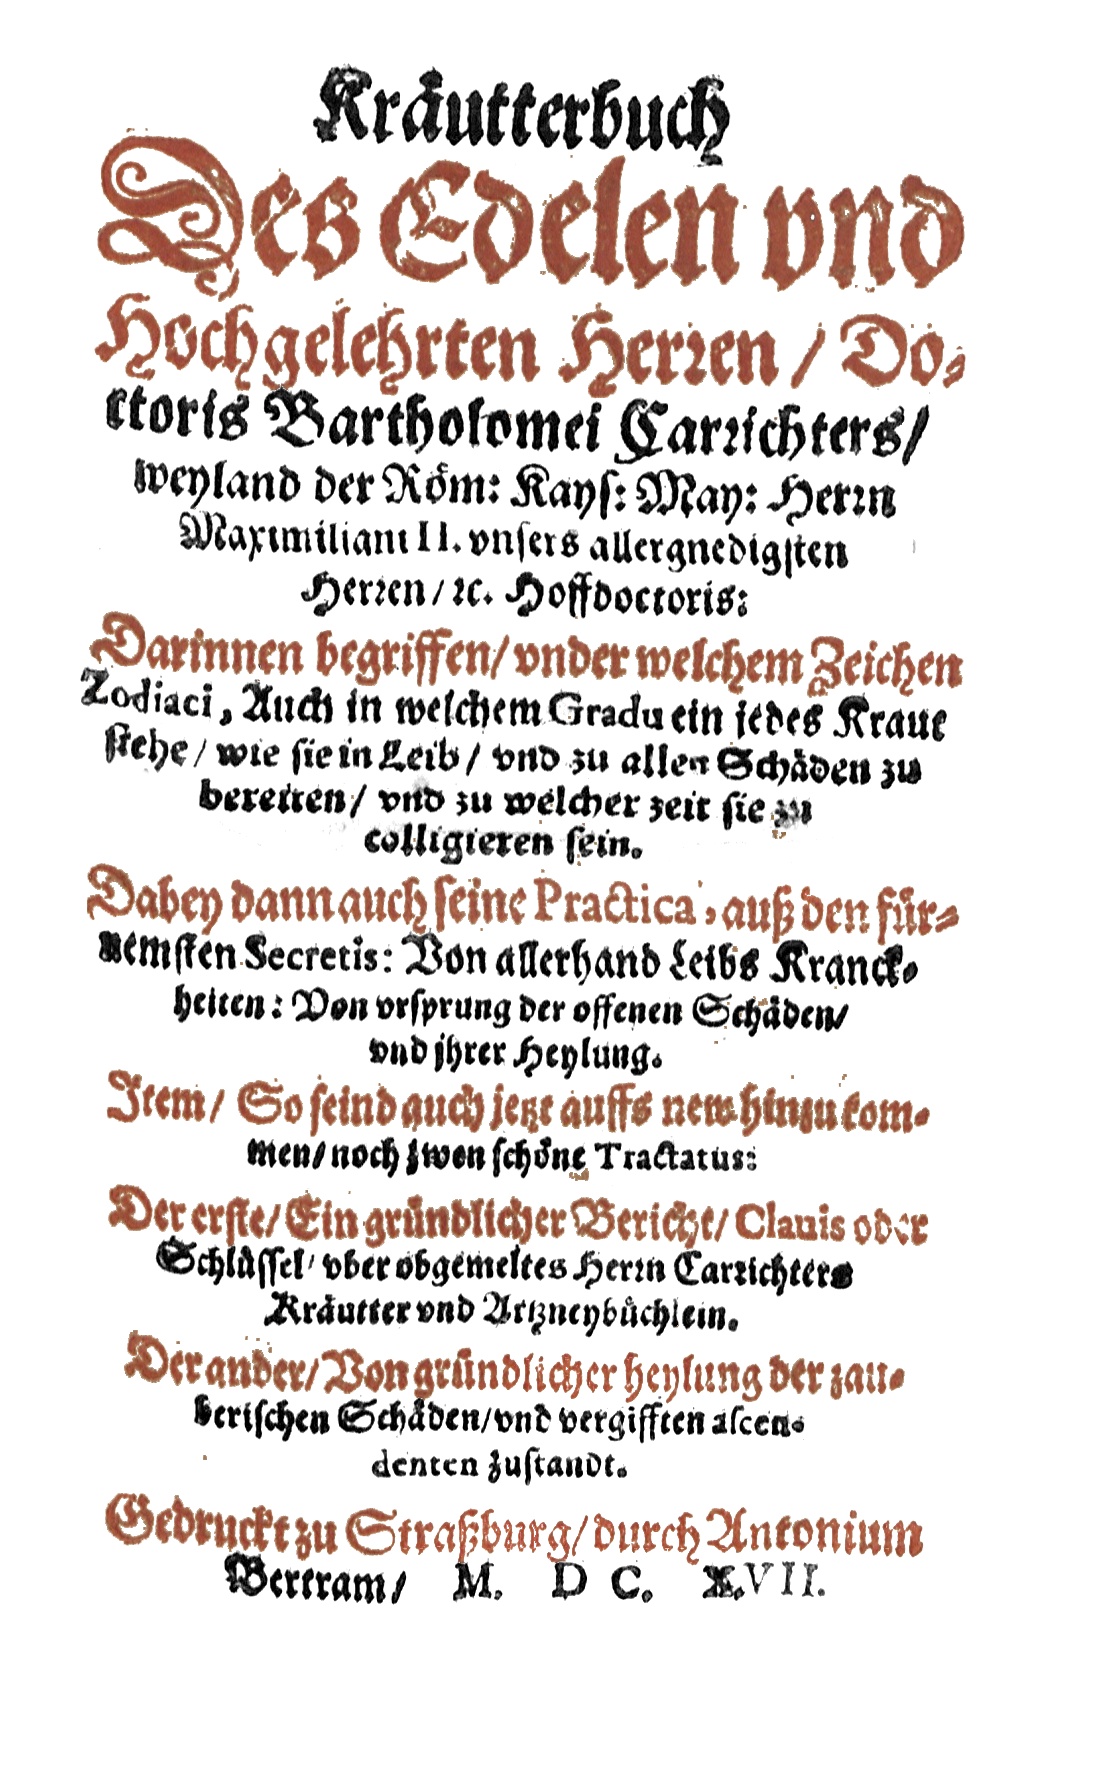 Kräutterbuch
Des Edelen vnd
Hochgelehrten Herꝛen / Do⸗
ctoris Bartholomei Carꝛichters /
weyland der Röm: Kayſ: May: Herꝛn
Maximiliani II. vnſers allergnedigſten
Herꝛen / ꝛc. Hoffdoctoris:
Darinnen begriffen / vnder welchem Zeichen
Zodiaci, Auch in welchem Gradu ein jedes Kraut
ſtehe / wie ſie in Leib / vnd zu allen Schäden zu
bereitten / vnd zu welcher zeit ſie zu
colligieren ſein.
Dabey dann auch ſeine Practica, auß den für⸗
nemſten Secretis: Von allerhand Leibs Kranck⸗
heiten: Von vrſprung der offenen Schäden /
vnd jhrer Heylung.
Item / So ſeind auch jetzt auffs new hinzu kom⸗
men / noch zwen ſchöne Tractatus:
Der erſte / Ein gründlicher Bericht / Clauis oder
Schlüſſel / vber obgemeltes Herꝛn Carꝛichters
Kräutter vnd Artzneybüchlein.
Der ander / Von gründlicher heylung der zau⸗
beriſchen Schäden / vnd vergifften aſcen⸗
denten zuſtandt.
Gedruckt zu Straßburg / durch Antonium
Bertram / M. D C. X.VII.